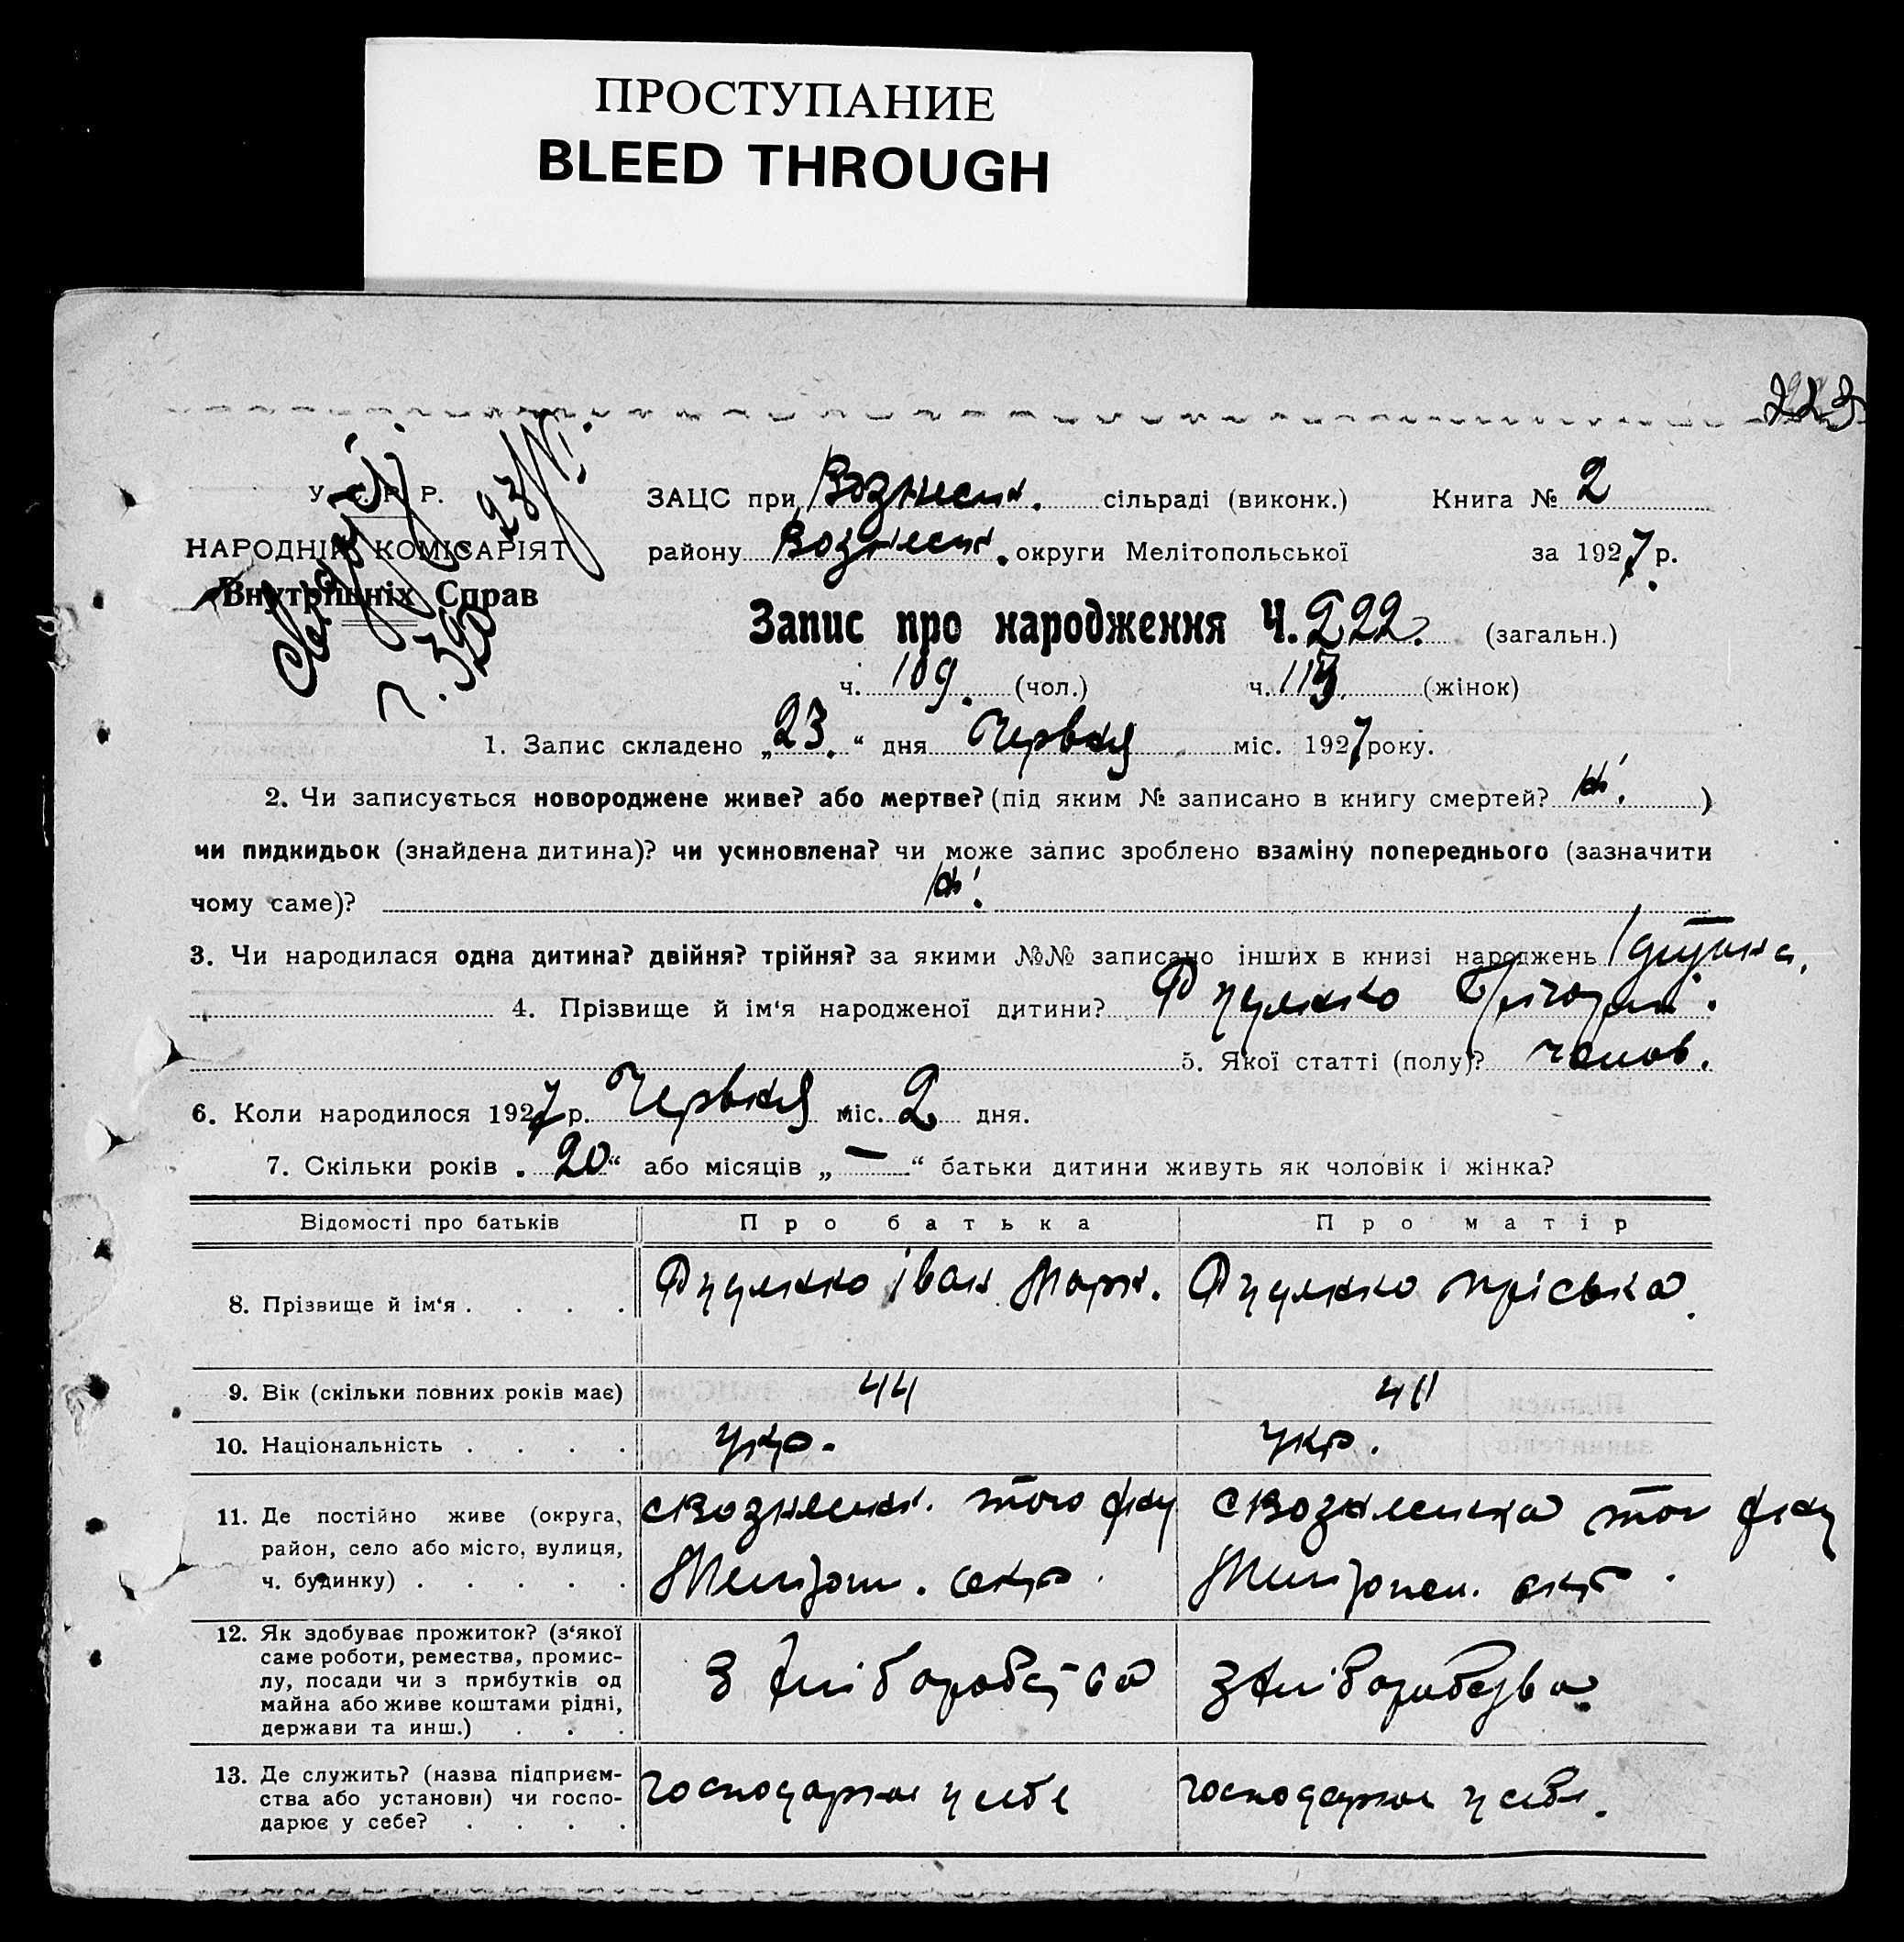 ПРОСТУПАНИЕ
BLEED THROUGH
223
У. С. Р. Р.
НАРОДНІЙ КОМІСАРІЯТ
Внутрішніх Справ
ЗАЦС при Вознесен. сільраді (виконк.) Книга № 2
району Вознесен. округи Мелітопольської за 1927 р.
Запис про народження Ч. 222. (загальн.)
ч. 109. (чол.) ч. 113. (жінок)
1. Запис складено „23.“ дня Червня міс. 1927 року.
2. Чи записується новороджене живе? або мертве? (під яким № записано в книгу смертей? )
чи пидкидьок (знайдена дитина)? чи усиновлена? чи може запис зроблено взаміну попереднього (зазначити
чому саме)?
3. Чи народилася одна дитина? двійня? трійня? за якими №№ записано інших в книзі народжень 1 дитина.
4. Прізвище й ім‘я народженої дитини? Григорій.
5. Якої статті (полу)? чолов.
6. Коли народилося 1927 р. Червня міс. 2 дня.
7. Скільки років „20“ або місяців „—“ батьки дитини живуть як чоловік і жінка?
Відомості про батьків Про батька Про матір
8. Прізвище й ім‘я . . . . Іван Марк. Пріська.
9. Вік (скільки повних років має) 44 41
10. Національність . . . . укр. укр.
11. Де постійно живе (округа,
район, село або місто, вулиця,
ч. будинку) . . . . .
с Вознесен. того р-ну
Мелітоп. окр.
с Вознесенка того р-ну
Мелітопол. окр.
12. Як здобуває прожиток? (з‘якої
саме роботи, ремества, промис-
лу, посади чи з прибутків од
майна або живе коштами рідні,
держави та инш.) . . .
З хліборобства
З хліборобства
13. Де служить? (назва підприєм-
ства або установи) чи госпо-
дарює у себе? . . . .
господарює у себе
господарює у себе.